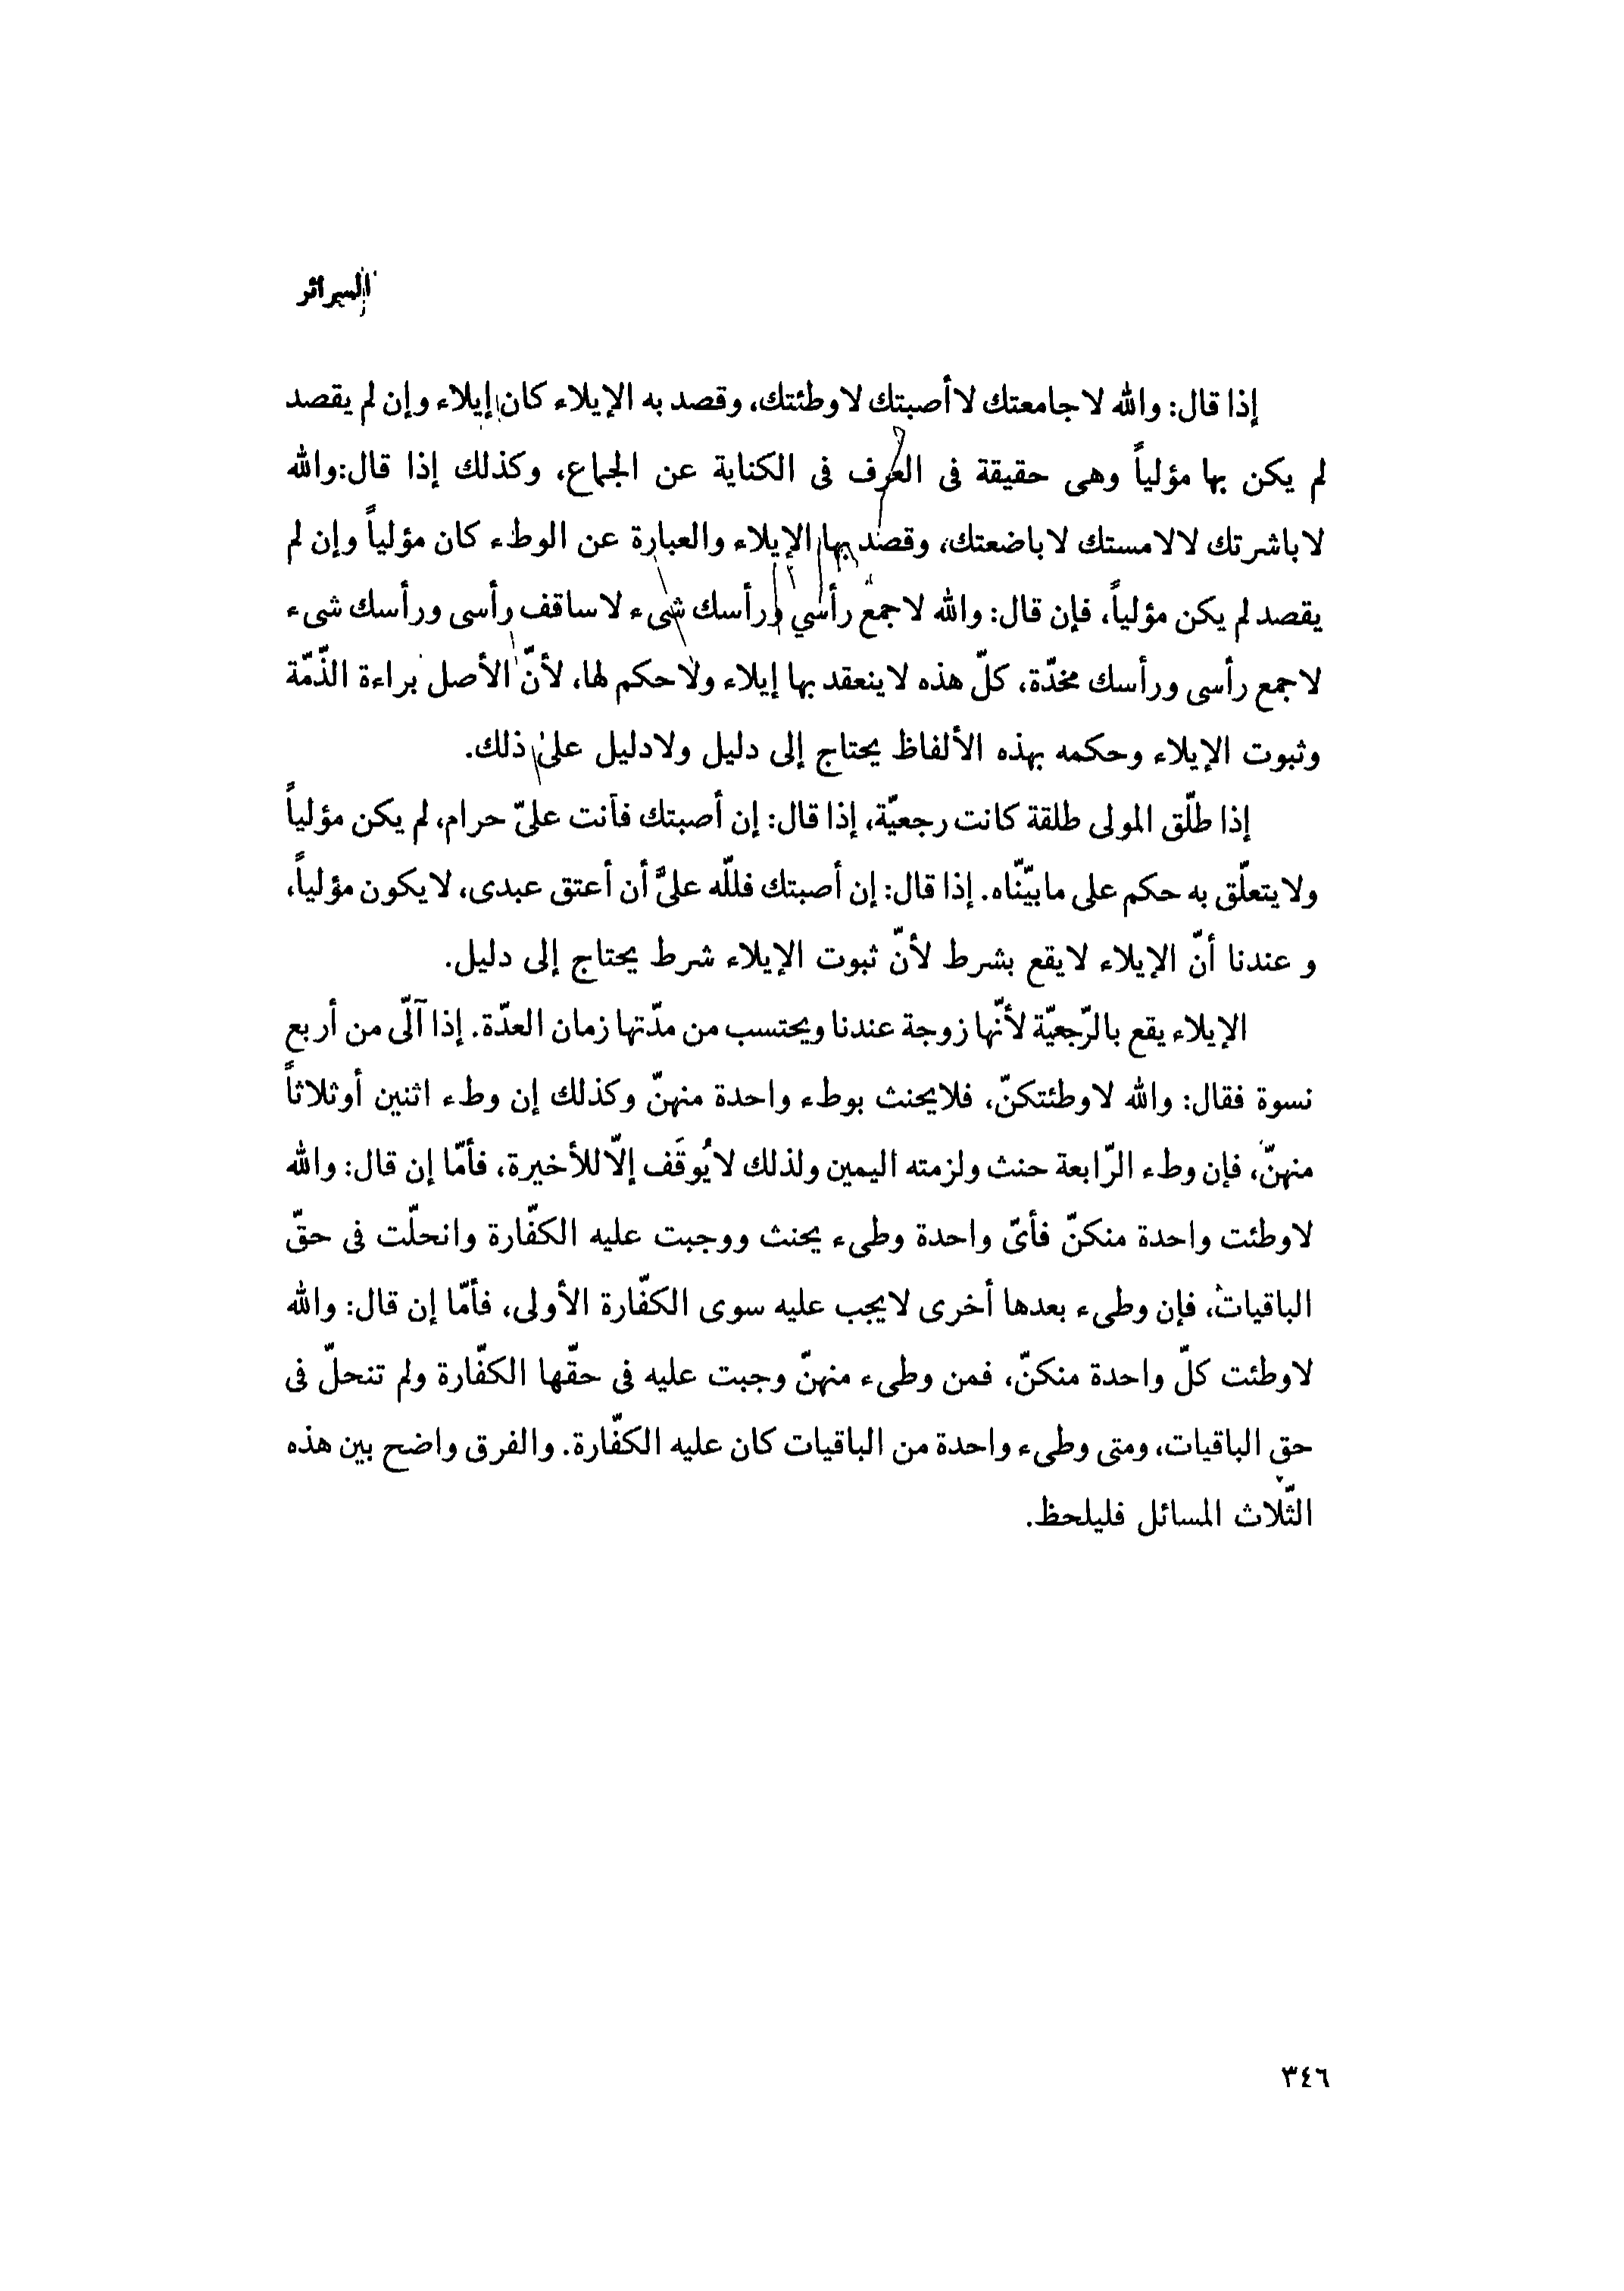 السرائر
إذا قال: والله لاجامعتك لاأصبتك لاوطئتك، وقصد به الإيلاء كان إيلاء وإن لم يقصد
لم يكن بها مؤلياً وهى حقيقة فى العرف فى الكناية عن الجماع، وكذلك إذا قال:والله
لاباشرتك لالامستك لاباضعتك، وقصد بها الإيلاء والعبارة عن الوطء كان مؤلياً وإن لم
يقصد لم يكن مؤلياً، فإن قال: والله لاجمع رأسي ورأسك شىء لاساقف رأسى ورأسك شىء
لاجمع رأسى ورأسك مخدّة، كلّ هذه لاينعقد بها إيلاء ولاحكم لها، لأنّ الأصل براءة الذّمّة
وثبوت الإيلاء وحكمه بهذه الألفاظ يحتاج إلى دليل ولادليل على ذلك.
إذا طلّق المولى طلقة كانت رجعيّة، إذا قال: إن أصبتك فأنت علىّ حرام، لم يكن مؤلياً
ولايتعلّق به حكم على مابيّنّاه. إذا قال: إن أصبتك فللّه علىَّ أن أعتق عبدى، لايكون مؤلياً،
و عندنا أنّ الإيلاء لايقع بشرط لأنّ ثبوت الإيلاء شرط يحتاج إلى دليل.
الإيلاء يقع بالرّجعيّة لأنّها زوجة عندنا ويحتسب من مدّتها زمان العدّة. إذا آلّى من أربع
نسوة فقال: والله لاوطئتكنّ، فلايحنث بوطء واحدة منهنّ وكذلك إن وطء اثنين أوثلاثاً
منهنّ، فإن وطء الرّابعة حنث ولزمته اليمين ولذلك لايُوقَف إلّاللأخيرة، فأمّا إن قال: والله
لاوطئت واحدة منكنّ فأىّ واحدة وطىء يحنث ووجبت عليه الكفّارة وانحلّت فى حقّ
الباقيات، فإن وطىء بعدها أخرى لايجب عليه سوى الكفّارة الأولى، فأمّا إن قال: والله
لاوطئت كلّ واحدة منكنّ، فمن وطىء منهنّ وجبت عليه فى حقّها الكفّارة ولم تنحلّ فى
حق الباقيات، ومتى وطىء واحدة من الباقيات كان عليه الكفّارة. والفرق واضح بين هذه
الثّلاث المسائل فليلحظ.
٣٤٦